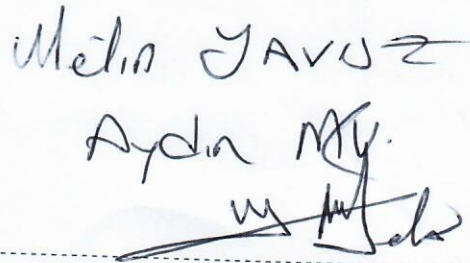 Metin YAVUZ
Aydın My.